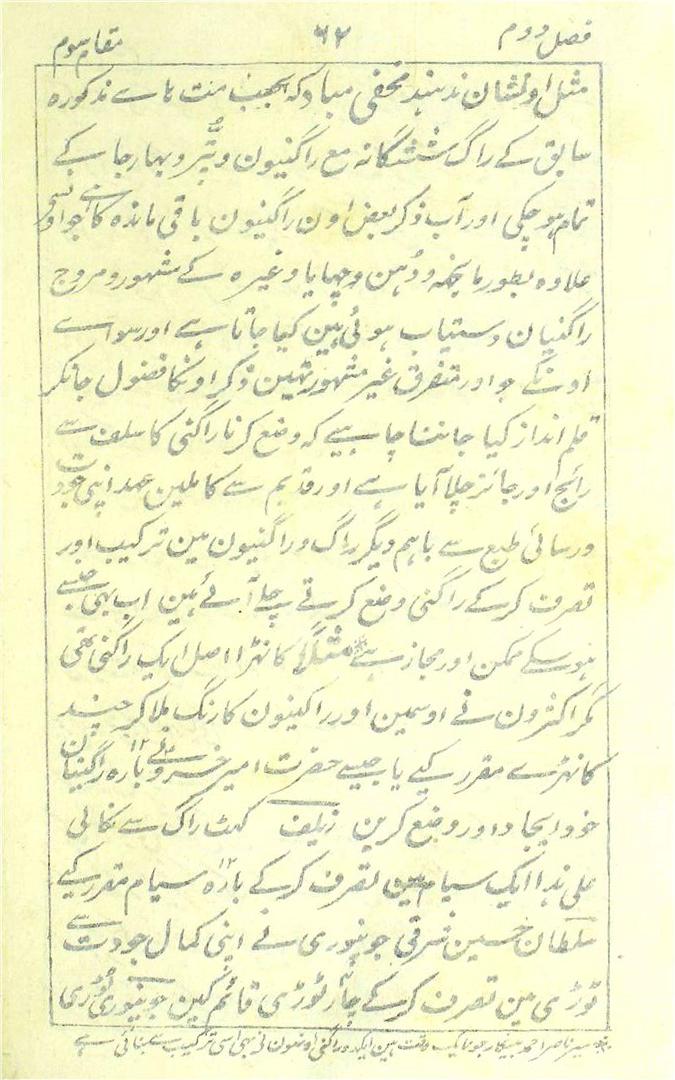 فصل دوم ۶۲ مقام سوم
مثل اونشان ندہند مخفی مباد کہ بموجب مت ہاے مذکورہ
سابق کے راگ ششگانہ مع راگنیون و پُتّر و بہارجا کے
تمام ہو چکی اور آب ذکر بعض اون راگنیون باقی ماندہ کا ہے جو اوسی
علاوہ بطور مابخمہ و دُہن و چہایا وغیرہ کے مشہور و مروج
راگنیان دستیاب ہوئی ہین کیا جاتا ہے اور سواے
اونکے جو اور متفرق غیر مشہور تہین ذکر اونکا فضول جانکر
قلم انداز کیا جاننا چاہیے کہ وضع کرنا راگنی کا سلف سے
رائج اور جائز چلا آیا ہے اور قدیم سے کاملین عہد اپنی جودت
و رسائی طبع سے باہم دیگر راگ و راگنیون مین ترکیب اور
تصرف کر کے راگنی وضع کرتے چلے آئے ہین اب بہی جسے
ہو سکے ممکن اور مجاز ہے مثلاً کانہڑا اصل ایک راگنی تھی
مگر اکثرون نے اوسمین اور راگنیون کا رنگ ملا کر چند
کانہڑے مقرر کیے یا جیسے حضرت امیر خسرو نے ۱۲ بارہ راگنیان
خود ایجاد اور وضع کرین زیلف کہٹ راگ سے نکالی
علی ہذا ایک سیام مین تصرف کر کے ۱۲ بارہ سیام مقرر کیے
سلطان حسین شرقی جونپوری نے اپنی کمال جودت سے
ٹوڑی مین تصرف کر کے چار ٹوڑی قائم کین جونپوری ٹوڑی
میر ناصر احمد بینکار جو نایک وقت ہین ایکدو راگنی اونہون نی بہی اسی ترکیب سے بنائی ہے